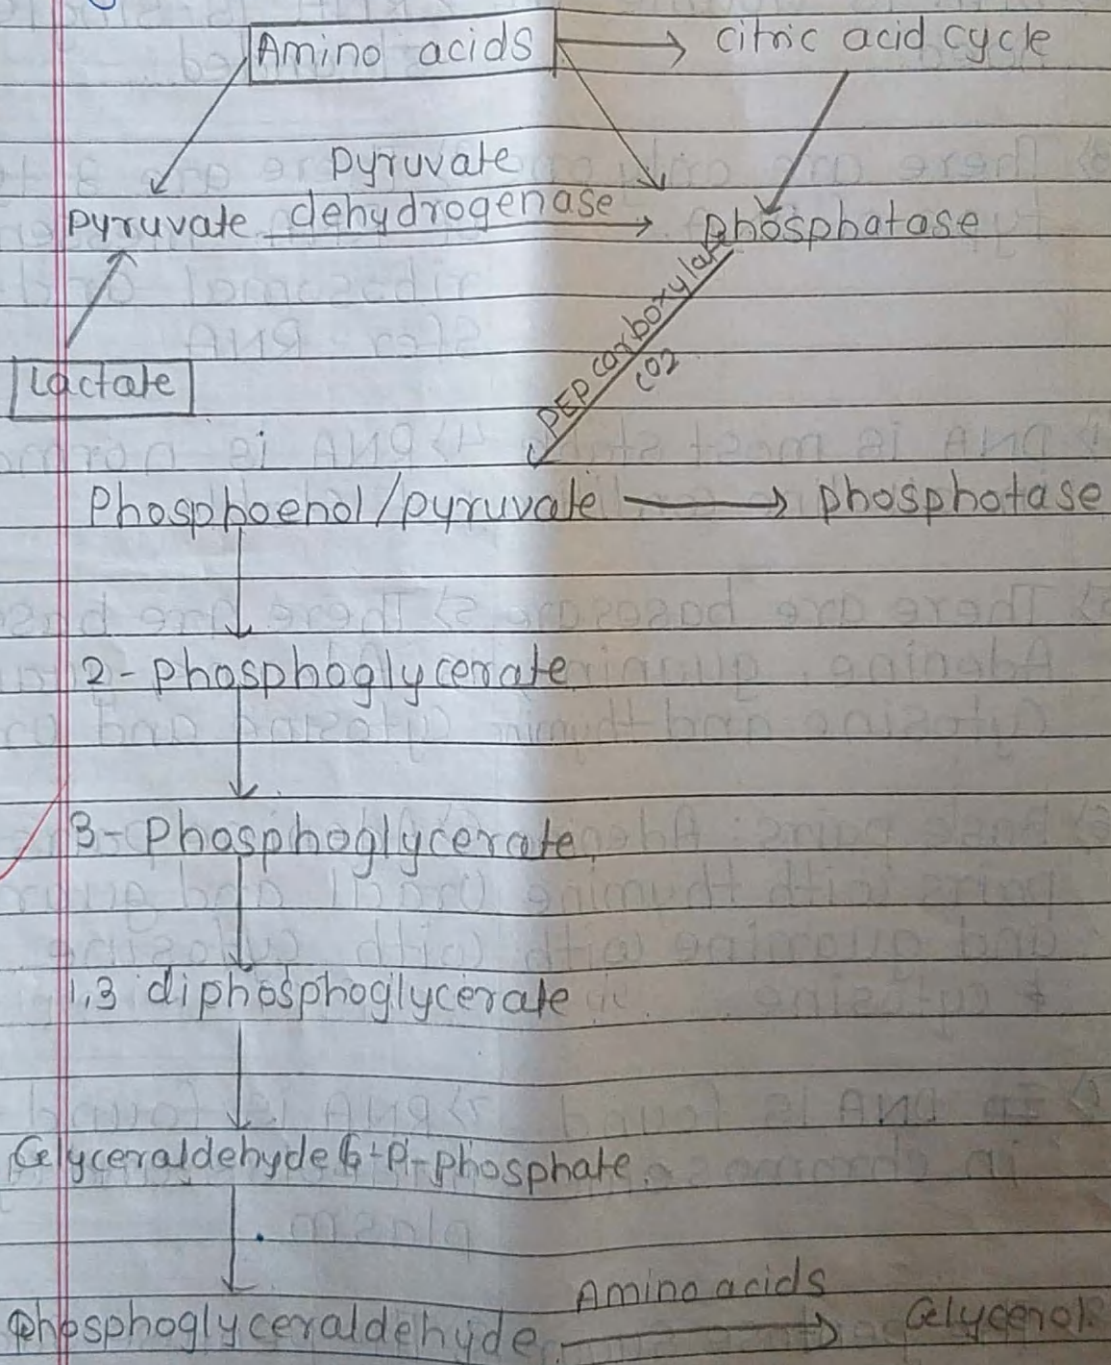 Amino acids → citric acid cycle
pyruvate
pyruvate dehydrogenase → phosphatase
PEP carboxylase
CO2
Lactate
Phosphoenol/pyruvate → phosphotase
2-phosphoglycerate
3-Phosphoglycerate
1,3 diphosphoglycerate
Glyceraldehyde -P-phosphate
Amino acids
phosphoglyceraldehyde → Glycerol